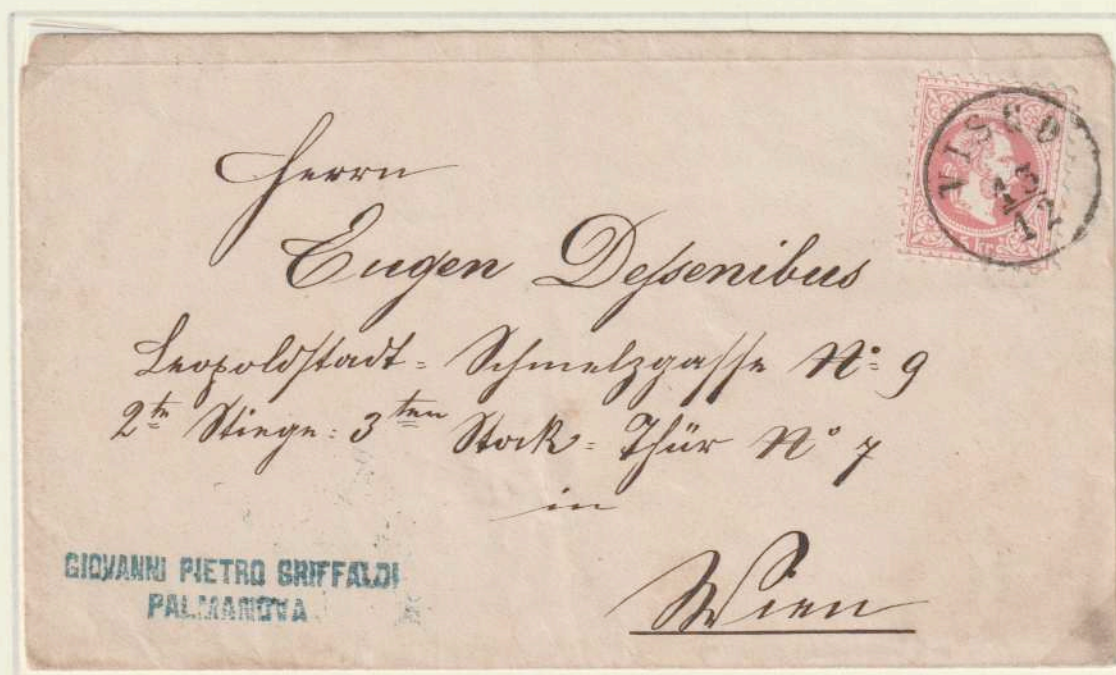 VISCO
13/12
Herrn
Eugen Dessenibus
Leopoldstadt = Schmelzgasse No = 9
2te Stiege: 3ten Stock = Thür No 7
in
Wien
GIOVANNI PIETRO GRIFFALDI
PALMANOVA